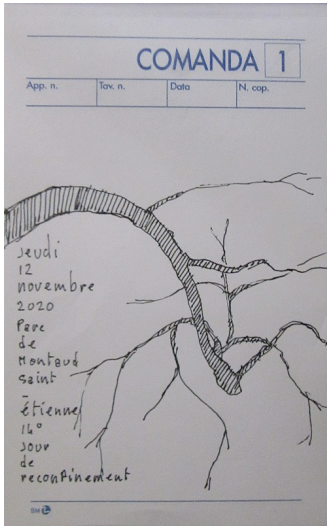 COMANDA 1
App. n. Tav. n. Data N. cop.
Jeudi
12
novembre
2020
Parc
de
Montaud
Saint
-
Étienne
14°
Jour
de
reconfinement
BM